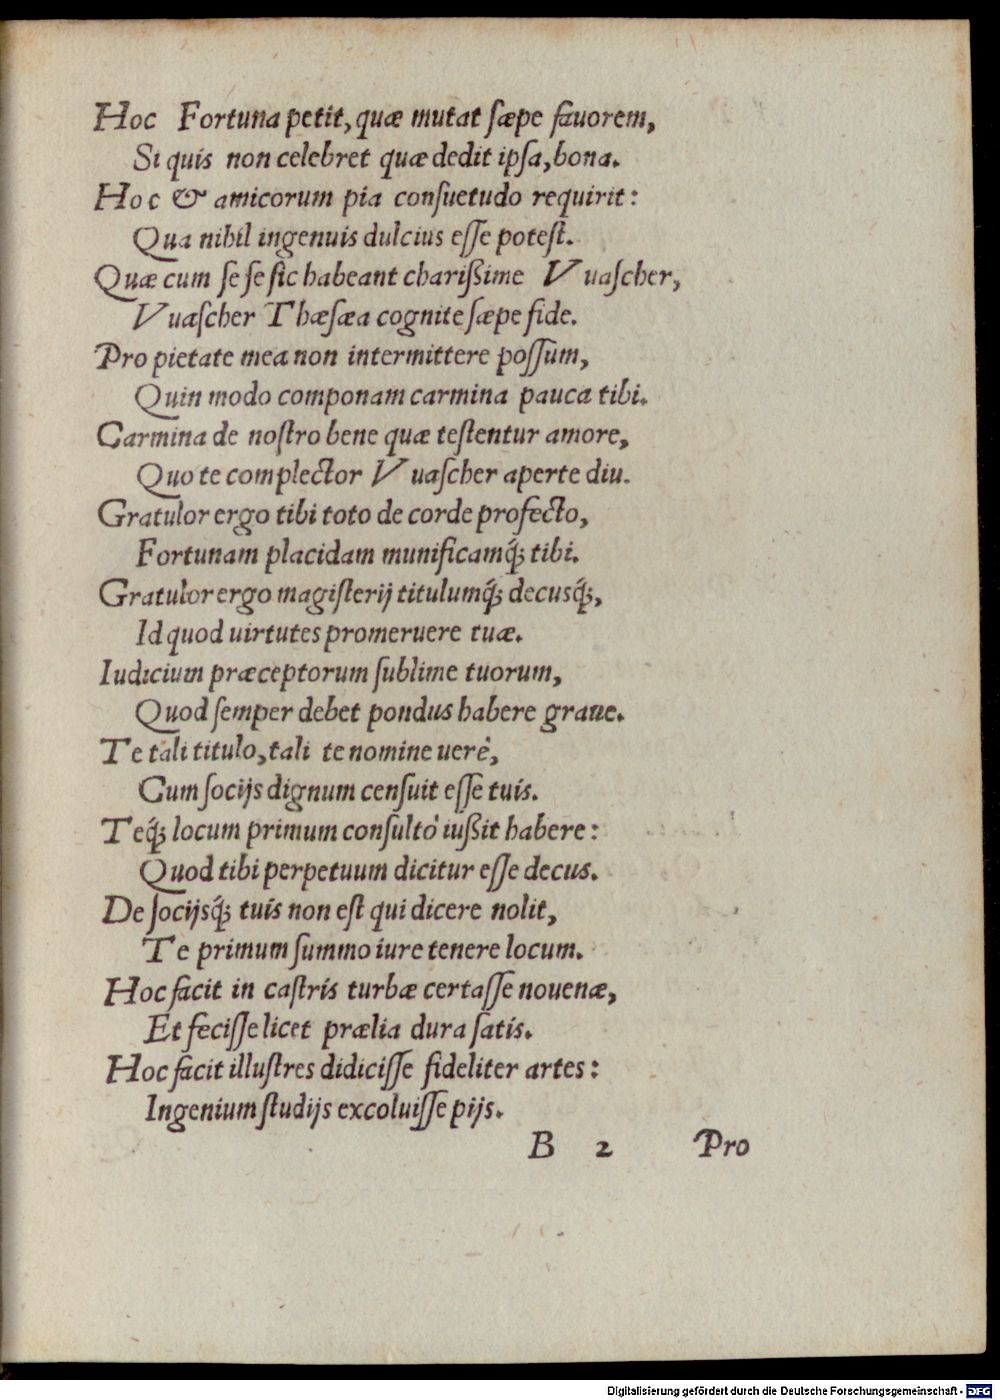 Hoc Fortuna petit, quæ mutat ſæpe fauorem,
Si quis non celebret quæ dedit ipſa, bona.
Hoc & amicorum pia conſuetudo requirit:
Qua nihil ingenuis dulcius eſſe poteſt.
Quæ cum ſe ſe ſic habeant chariſsime Vuaſcher,
Vuaſcher Thæſæa cognite ſæpe fide.
Pro pietate mea non intermittere poſſum,
Quin modo componam carmina pauca tibi.
Carmina de noſtro bene quæ teſtentur amore,
Quo te complector Vuaſcher aperte diu.
Gratulor ergo tibi toto de corde profecto,
Fortunam placidam munificamq́; tibi.
Gratulor ergo magiſterij titulumq́; decusq́;,
Id quod uirtutes promeruere tuæ.
Iudicium præceptorum ſublime tuorum,
Quod ſemper debet pondus habere graue.
Te tali titulo, tali te nomine uerè,
Cum ſocijs dignum cenſuit eſſe tuis.
Teq́; locum primum conſultò iuſsit habere:
Quod tibi perpetuum dicitur eſſe decus.
De ſocijsq́; tuis non eſt qui dicere nolit,
Te primum ſummo iure tenere locum.
Hoc facit in caſtris turbæ certaſſe nouenæ,
Et feciſſe licet prælia dura ſatis.
Hoc facit illuſtres didiciſſe fideliter artes:
Ingenium ſtudijs excoluiſſe pijs.
B 2 Pro
Digitalisierung gefördert durch die Deutsche Forschungsgemeinschaft - DFG